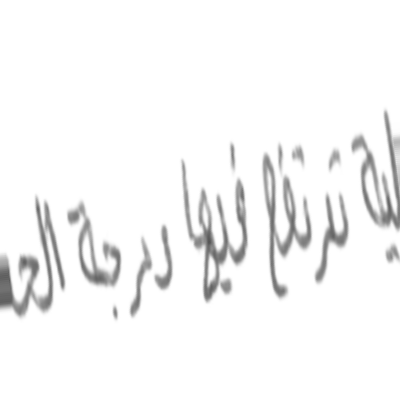 لية ترتفع فيها درجة الحـ